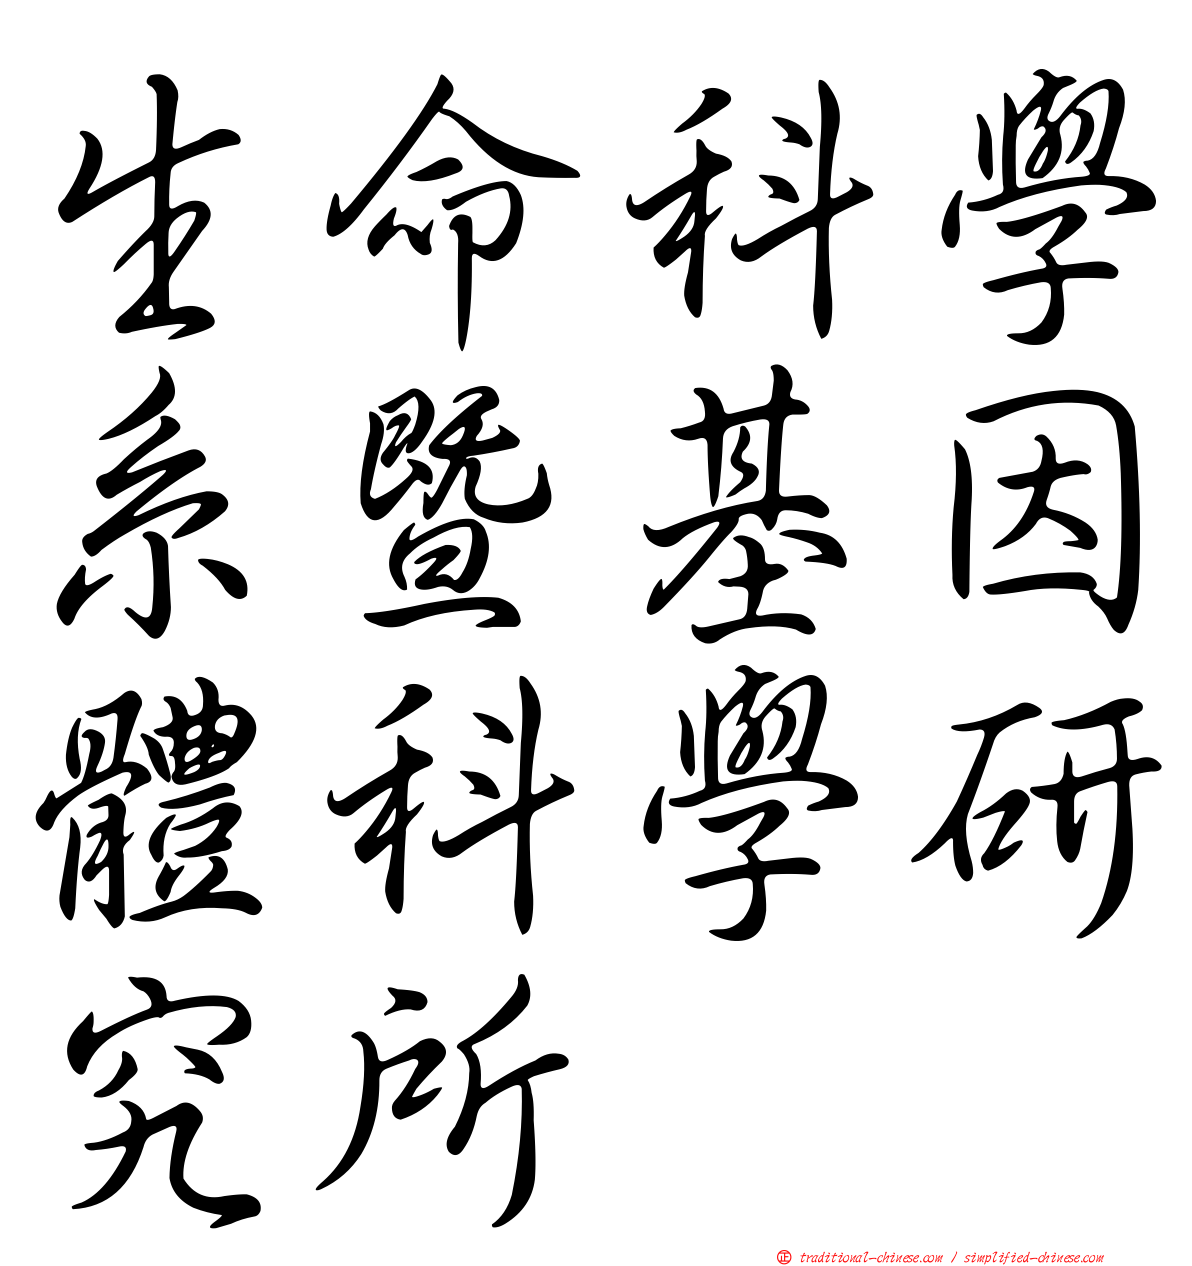 生命科學
系暨基因
體科學研
究所
正 traditional-chinese.com / simplified-chinese.com